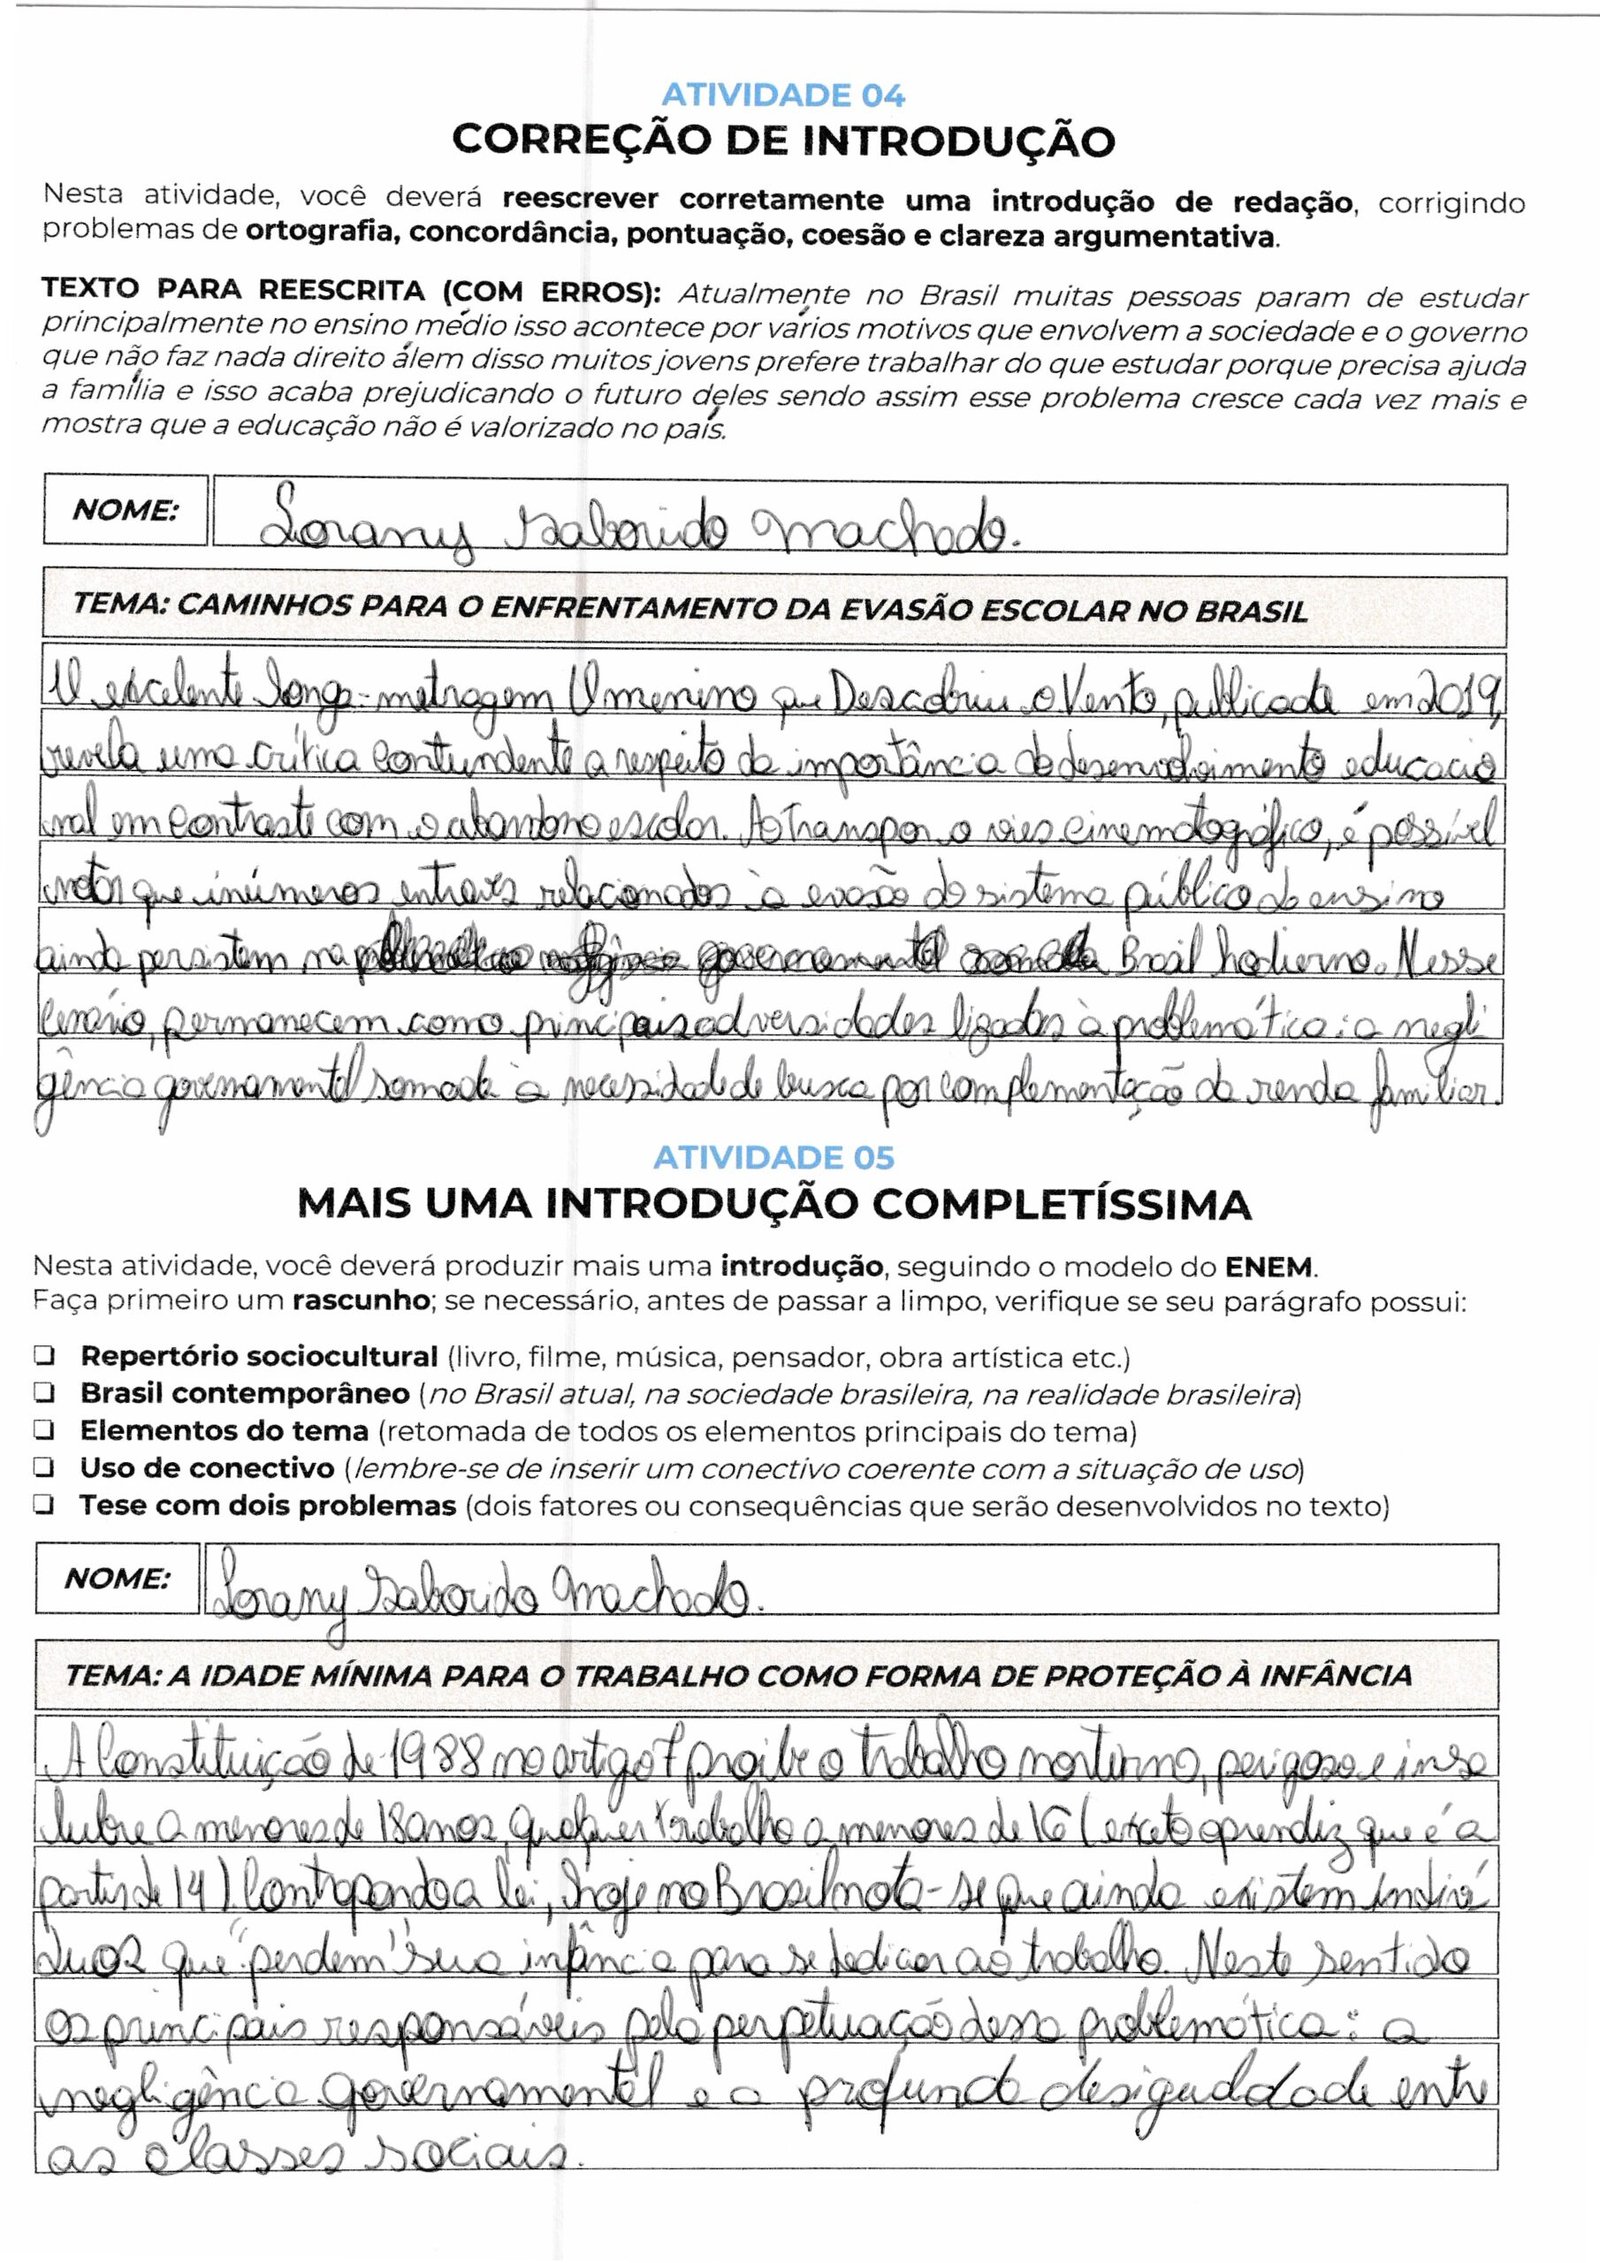 ATIVIDADE 04
CORREÇÃO DE INTRODUÇÃO
Nesta atividade, você deverá reescrever corretamente uma introdução de redação, corrigindo
problemas de ortografia, concordância, pontuação, coesão e clareza argumentativa.
TEXTO PARA REESCRITA (COM ERROS): Atualmente no Brasil muitas pessoas param de estudar
principalmente no ensino médio isso acontece por vários motivos que envolvem a sociedade e o governo
que não faz nada direito álem disso muitos jovens prefere trabalhar do que estudar porque precisa ajuda
a família e isso acaba prejudicando o futuro deles sendo assim esse problema cresce cada vez mais e
mostra que a educação não é valorizado no país.
NOME: Lorany Saborido Machado.
TEMA: CAMINHOS PARA O ENFRENTAMENTO DA EVASÃO ESCOLAR NO BRASIL
O excelente longa-metragem O menino que Descobriu o Vento, publicada em 2019,
revela uma crítica contundente a respeito da importância do desenvolvimento educacio
nal em contraste com o abandono escolar. Ao transpor o viés cinematográfico, é possível
notar que inúmeros entraves relacionados à evasão do sistema público de ensino
ainda persistem na Brasil hodierno. Nesse
cenário, permanecem como principais adversidades ligadas à problemática: a negli
gência governamental somada à necessidade de busca por complementação da renda familiar.
ATIVIDADE 05
MAIS UMA INTRODUÇÃO COMPLETÍSSIMA
Nesta atividade, você deverá produzir mais uma introdução, seguindo o modelo do ENEM.
Faça primeiro um rascunho; se necessário, antes de passar a limpo, verifique se seu parágrafo possui:
❏ Repertório sociocultural (livro, filme, música, pensador, obra artística etc.)
❏ Brasil contemporâneo (no Brasil atual, na sociedade brasileira, na realidade brasileira)
❏ Elementos do tema (retomada de todos os elementos principais do tema)
❏ Uso de conectivo (lembre-se de inserir um conectivo coerente com a situação de uso)
❏ Tese com dois problemas (dois fatores ou consequências que serão desenvolvidos no texto)
NOME: Lorany Saborido Machado.
TEMA: A IDADE MÍNIMA PARA O TRABALHO COMO FORMA DE PROTEÇÃO À INFÂNCIA
A Constituição de 1988 no artigo 7 proíbe o trabalho norturno, perigoso e insa
lubre a menores de 18 anos, qualquer trabalho a menores de 16 (exceto aprendiz que é a
partir de 14). Contrapondo a lei, hoje no Brasil nota-se que ainda existem indiví
duos que "perdem" sua infância para se dedicar ao trabalho. Neste sentido
os principais responsáveis pela perpetuação dessa problemática: a
negligência governamental e a profunda desigualdade entre
as classes sociais.